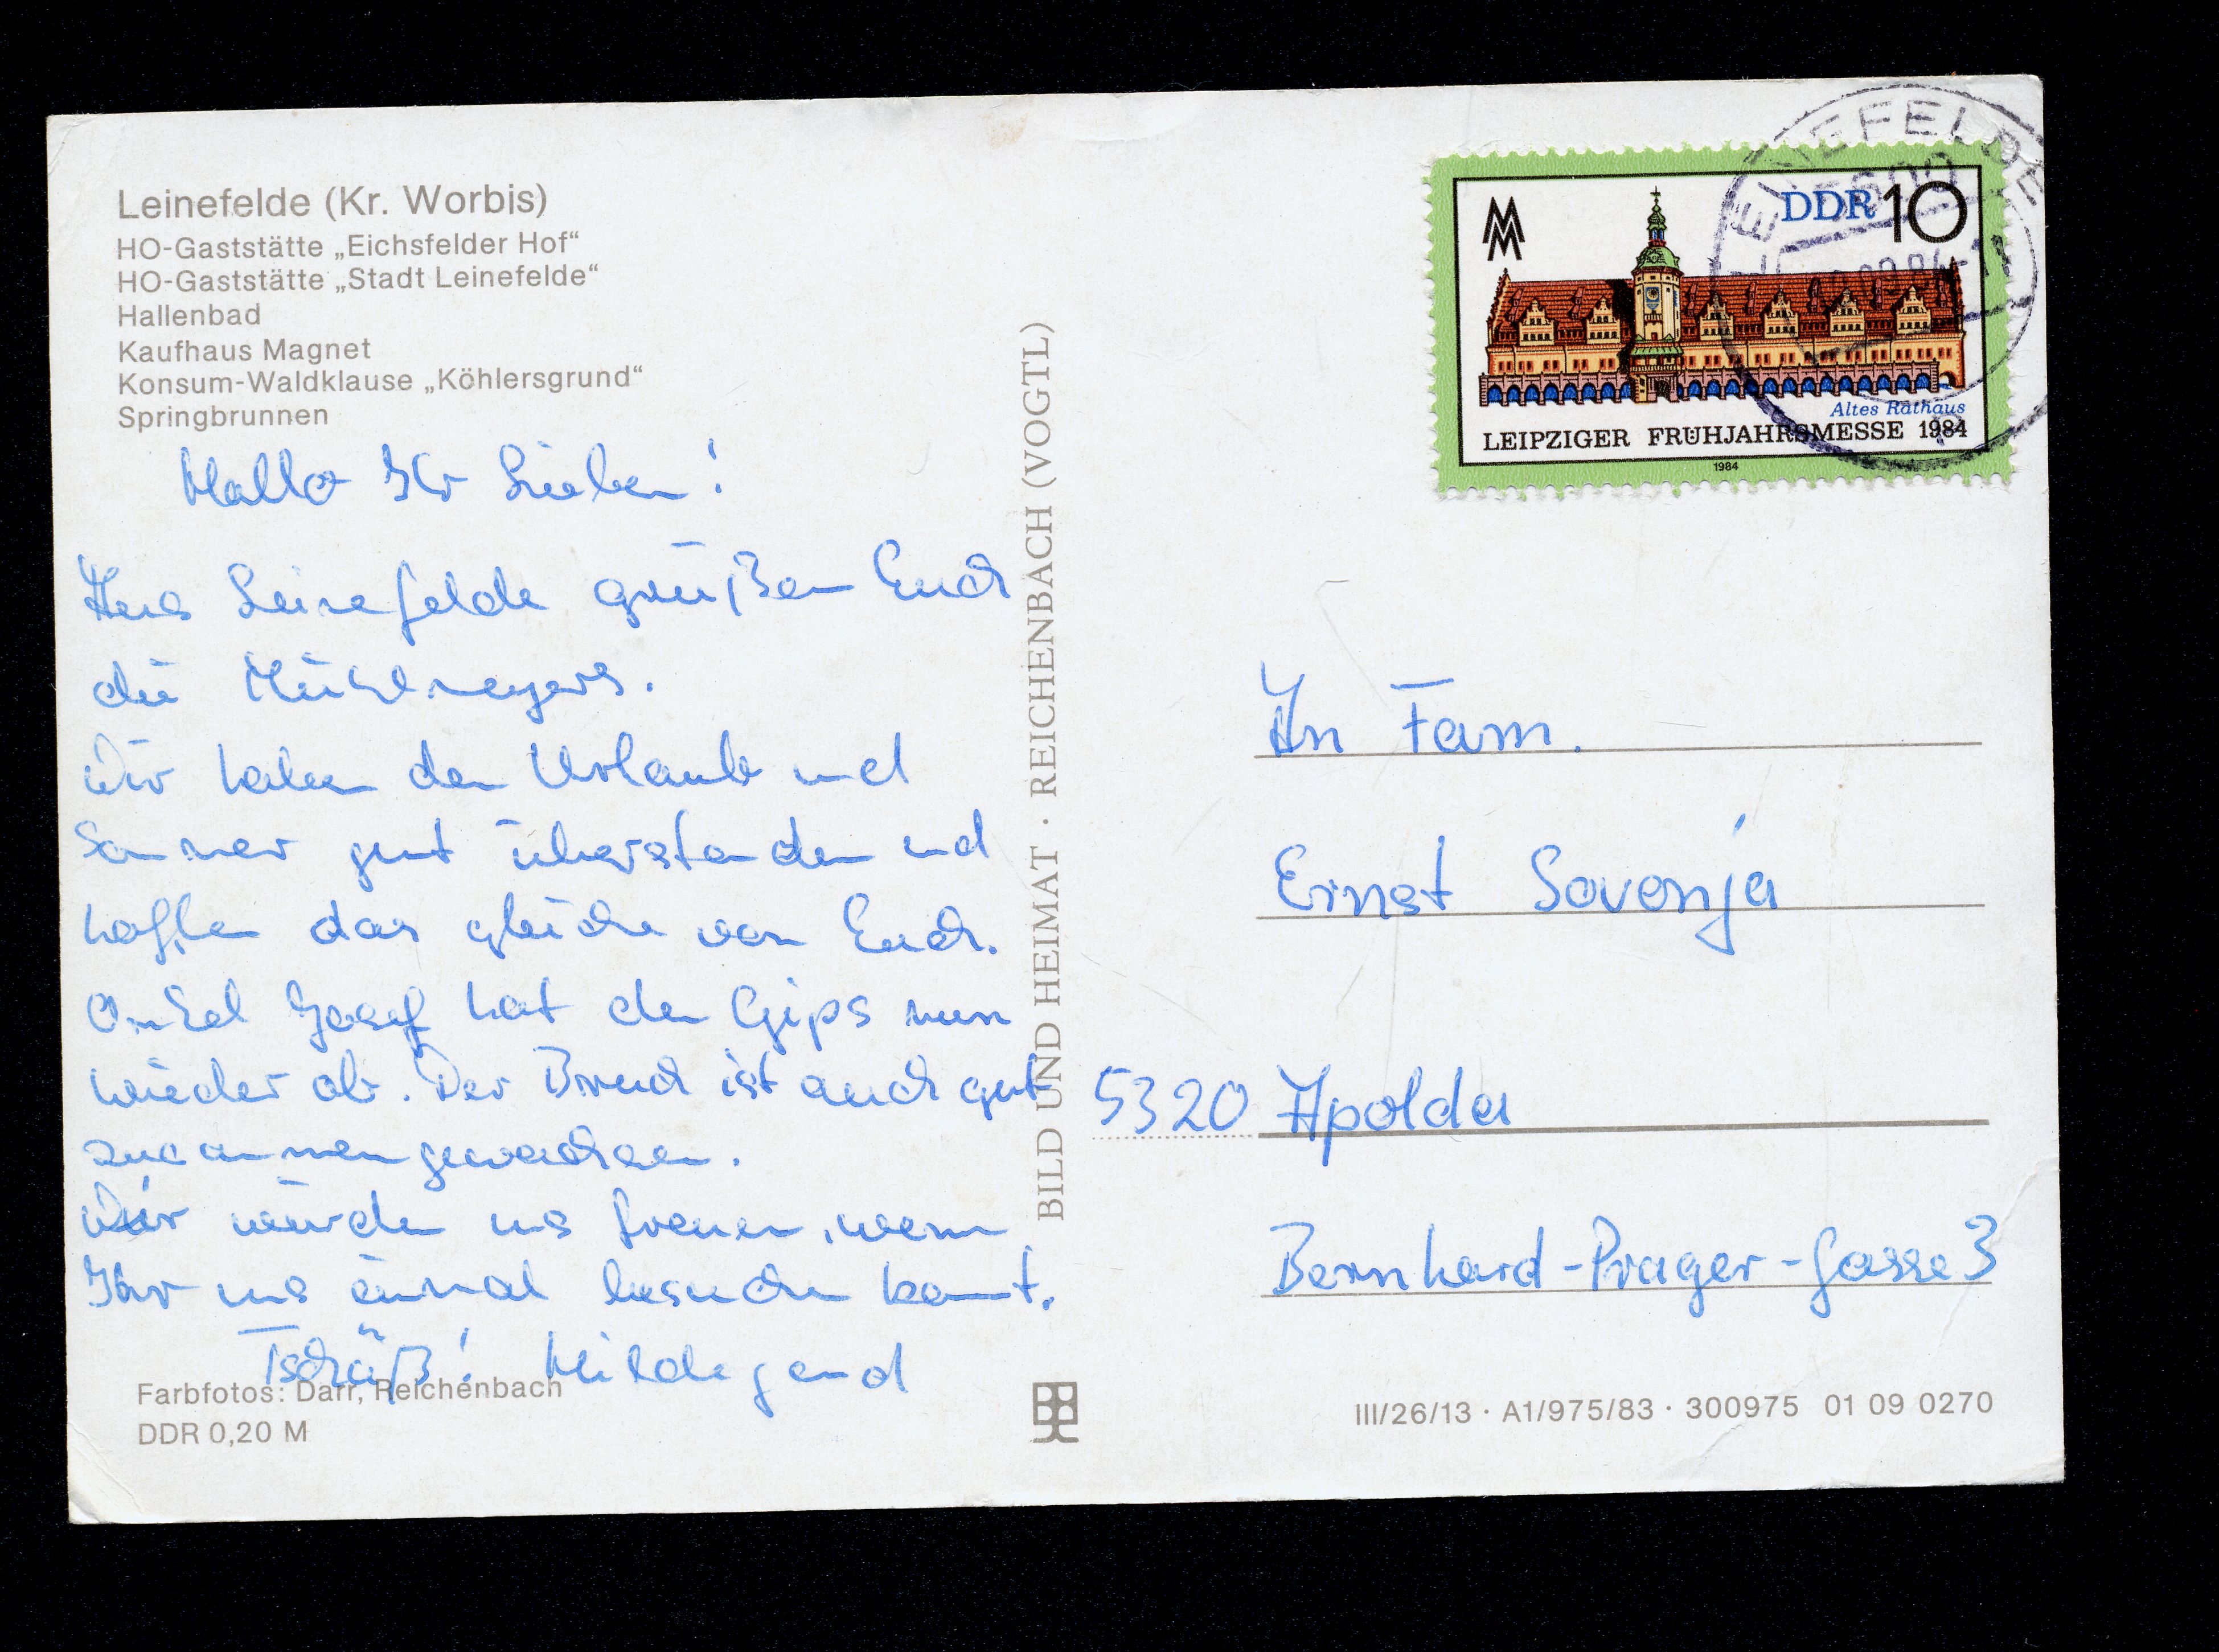 Leinefelde (Kr. Worbis)
HO-Gaststätte „Eichsfelder Hof“
HO-Gaststätte „Stadt Leinefelde“
Hallenbad
Kaufhaus Magnet
Konsum-Waldklause „Köhlersgrund“
Springbrunnen
Hallo Ihr Lieben!
Aus Leinefelde grüßen Euch
die Mühlmeyers.
Wir haben den Urlaub und
Sommer gut überstanden und
hoffen das gleiche von Euch.
Onkel Josef hat den Gips nun
wieder ab. Der Bruch ist auch gut
zusammengewachsen.
Wir würden uns freuen, wenn
Ihr uns einmal besuchen kommt.
Tschüß! Hildegard
Farbfotos: Darr, Reichenbach
DDR 0,20 M
BILD UND HEIMAT · REICHENBACH (VOGTL)
LEINEFELDE
5600
DDR 10
Altes Rathaus
LEIPZIGER FRÜHJAHRSMESSE 1984
1984
An Fam.
Ernst Sovonja
5320 Apolda
Bernhard-Prager-Gasse 3
III/26/13 · A1/975/83 · 300975 01 09 0270